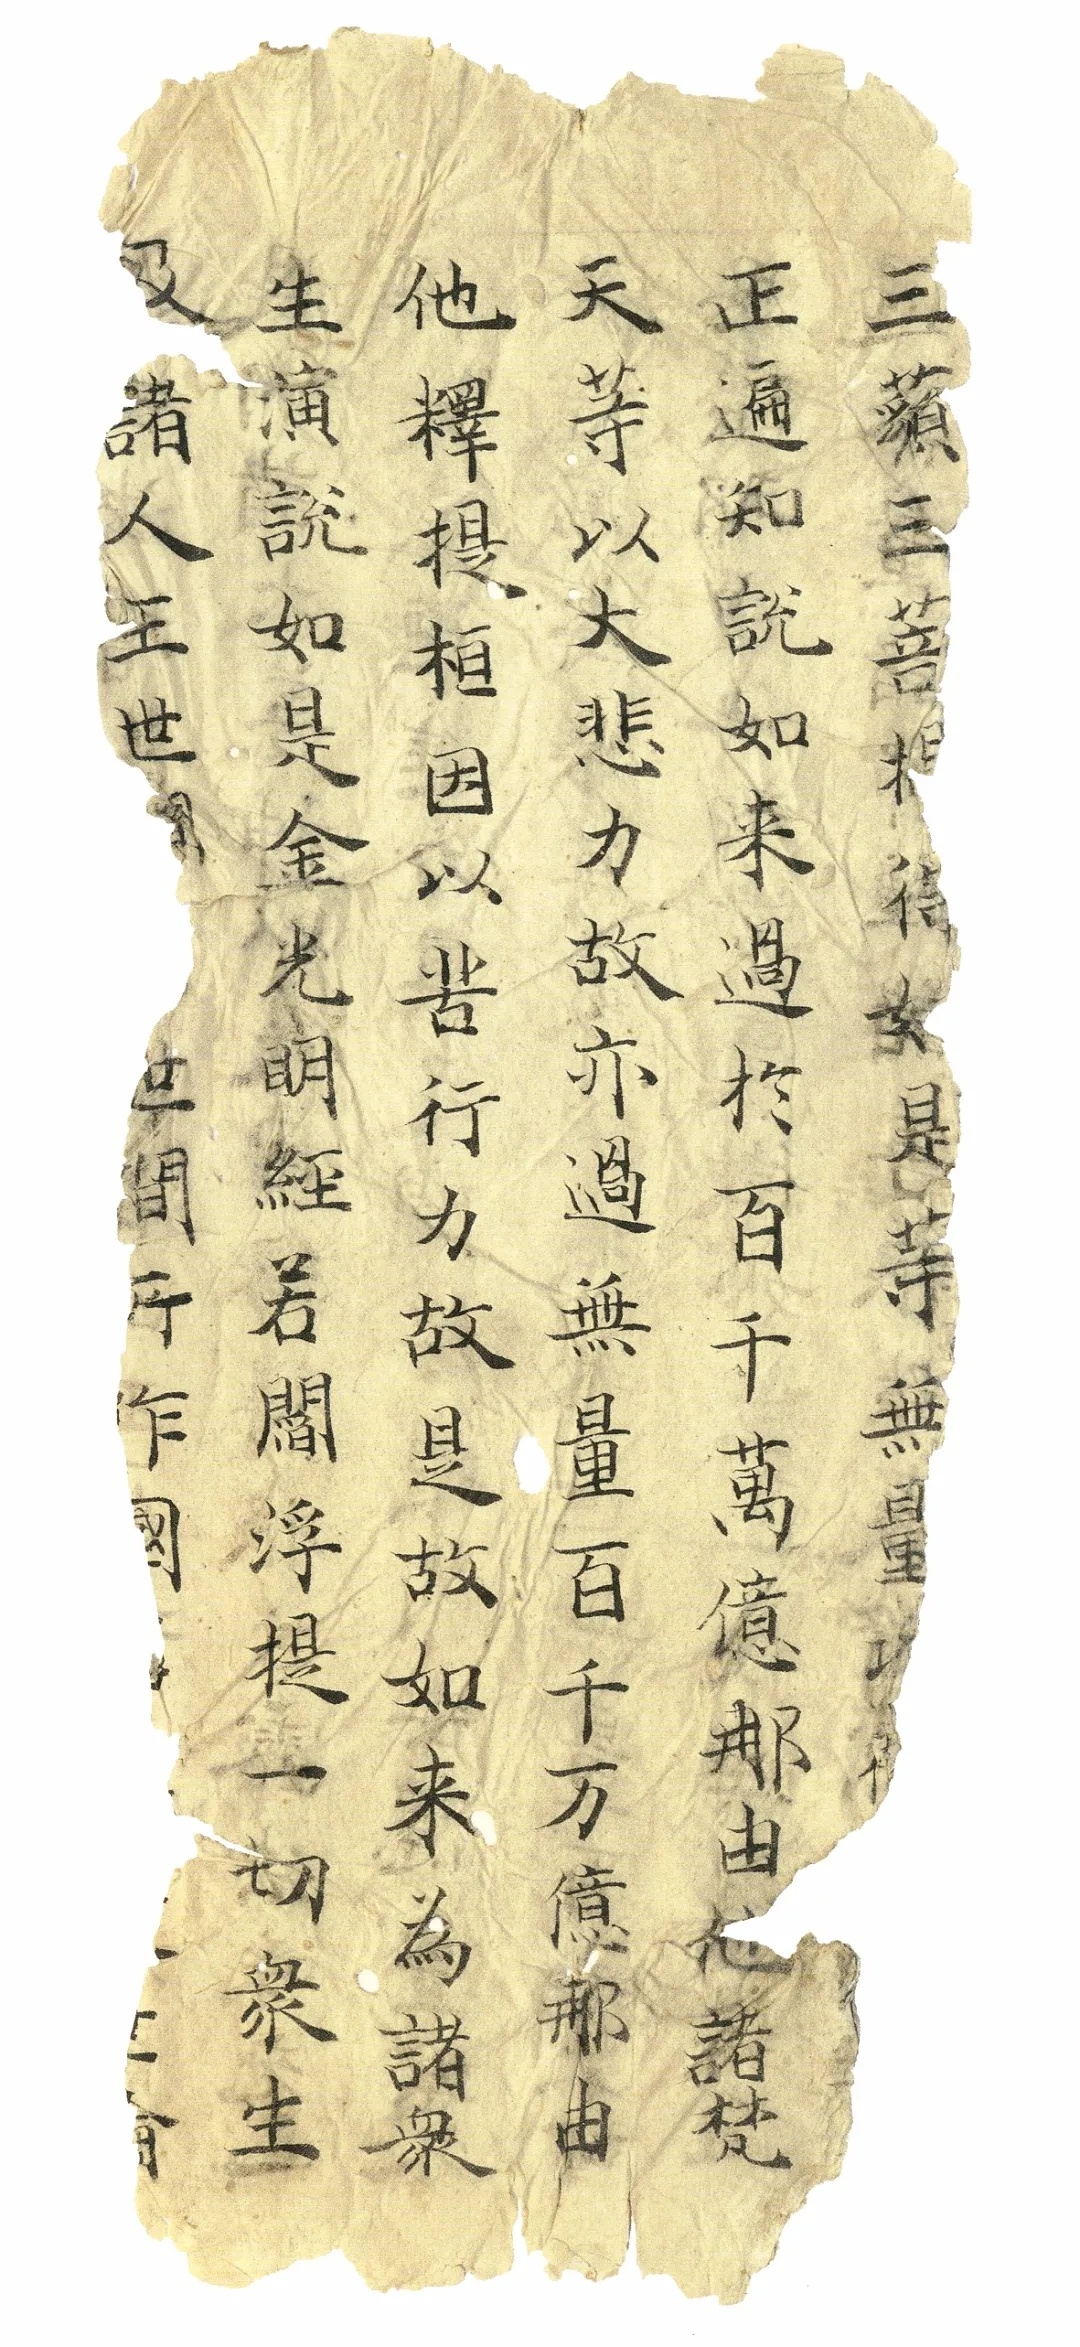 三藐三菩提得如是等無量功德
正遍知說如来過於百千萬億那由他諸梵
天等以大悲力故亦過無量百千万億那由
他釋提桓因以苦行力故是故如来為諸衆
生演說如是金光明經若閻浮提一切衆生
及諸人王世間世間所作國